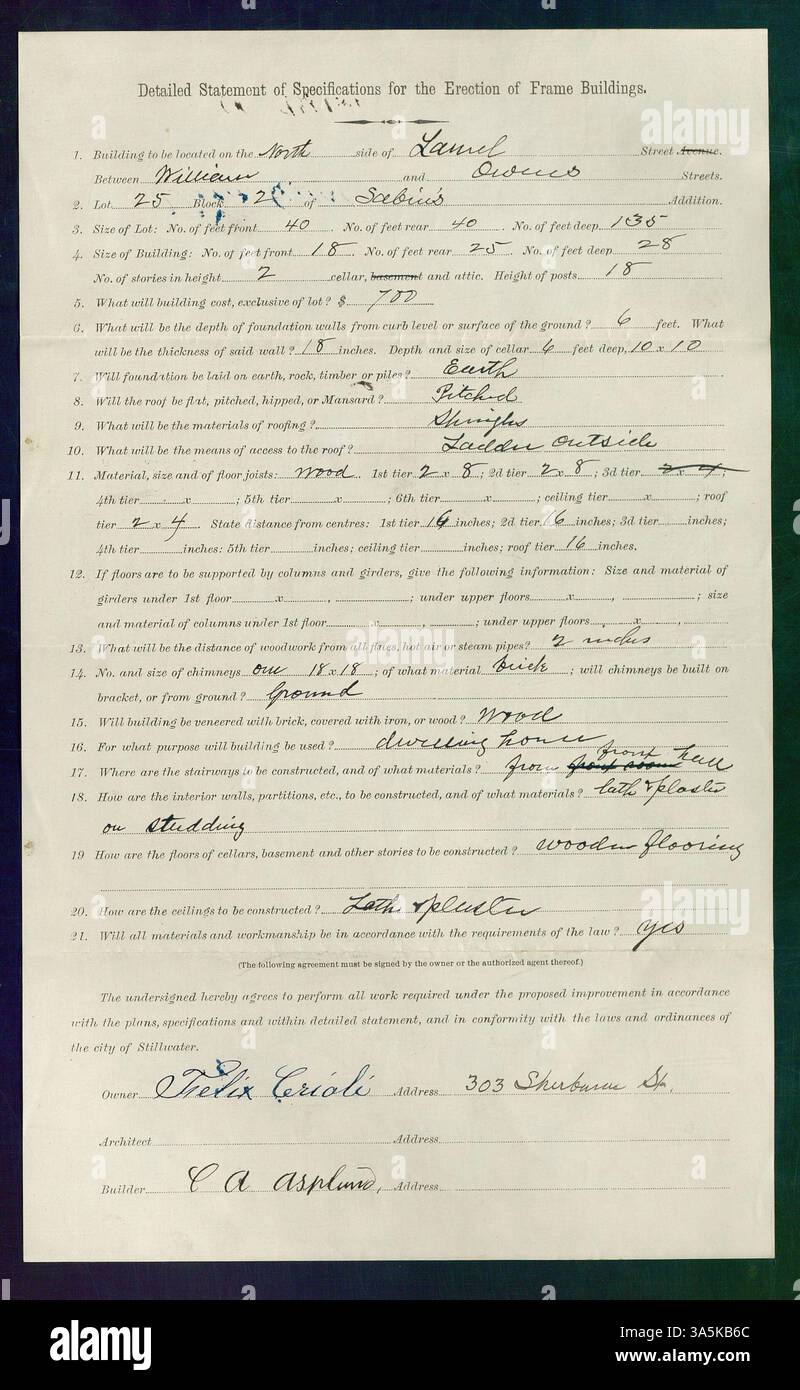 Detailed Statement of Specifications for the Erection of Frame Buildings.
1. Building to be located on the North side of Laurel Street Avenue.
Between William and Owens Streets.
2. Lot 25 Block 2 of Sabin's Addition.
3. Size of Lot: No. of feet front 40. No. of feet rear 40. No. of feet deep 135
4. Size of Building: No. of feet front 18. No. of feet rear 25. No. of feet deep 28
No. of stories in height 2 cellar, basement and attic. Height of posts 18
5. What will building cost, exclusive of lot? $ 700
6. What will be the depth of foundation walls from curb level or surface of the ground? 6 feet. What
will be the thickness of said wall? 18 inches. Depth and size of cellar 6 feet deep, 10 x 10
7. Will foundation be laid on earth, rock, timber or piles? Earth
8. Will the roof be flat, pitched, hipped, or Mansard? Pitched
9. What will be the materials of roofing? Shingles
10. What will be the means of access to the roof? Ladder outside
11. Material, size and of floor joists: Wood. 1st tier 2 x 8; 2d tier 2 x 8; 3d tier 2 x 4;
4th tier x ; 5th tier x ; 6th tier x ; ceiling tier x ; roof
tier 2 x 4. State distance from centres: 1st tier 16 inches; 2d tier 16 inches; 3d tier inches;
4th tier inches: 5th tier inches; ceiling tier inches; roof tier 16 inches.
12. If floors are to be supported by columns and girders, give the following information: Size and material of
girders under 1st floor x , ; under upper floors x , ; size
and material of columns under 1st floor x , ; under upper floors , x ,
13. What will be the distance of woodwork from all flues, hot air or steam pipes? 2 inches
14. No. and size of chimneys one 18 x 18; of what material brick; will chimneys be built on
bracket, or from ground? Ground
15. Will building be veneered with brick, covered with iron, or wood? Wood
16. For what purpose will building be used? dwelling house
17. Where are the stairways to be constructed, and of what materials? from front room front hall
18. How are the interior walls, partitions, etc., to be constructed, and of what materials? lath & plaster
on studding
19 How are the floors of cellars, basement and other stories to be constructed? wooden flooring
20. How are the ceilings to be constructed? Lath & plaster
21. Will all materials and workmanship be in accordance with the requirements of the law? yes
(The following agreement must be signed by the owner or the authorized agent thereof.)
The undersigned hereby agrees to perform all work required under the proposed improvement in accordance
with the plans, specifications and within detailed statement, and in conformity with the laws and ordinances of
the city of Stillwater.
Owner Felix Crioli Address 303 Sherburne St.
Architect Address
Builder C A Asplund, Address
alamy
alamy
alamy
alamy
alamy
alamy
Image ID: 3A5KB6C
www.alamy.com